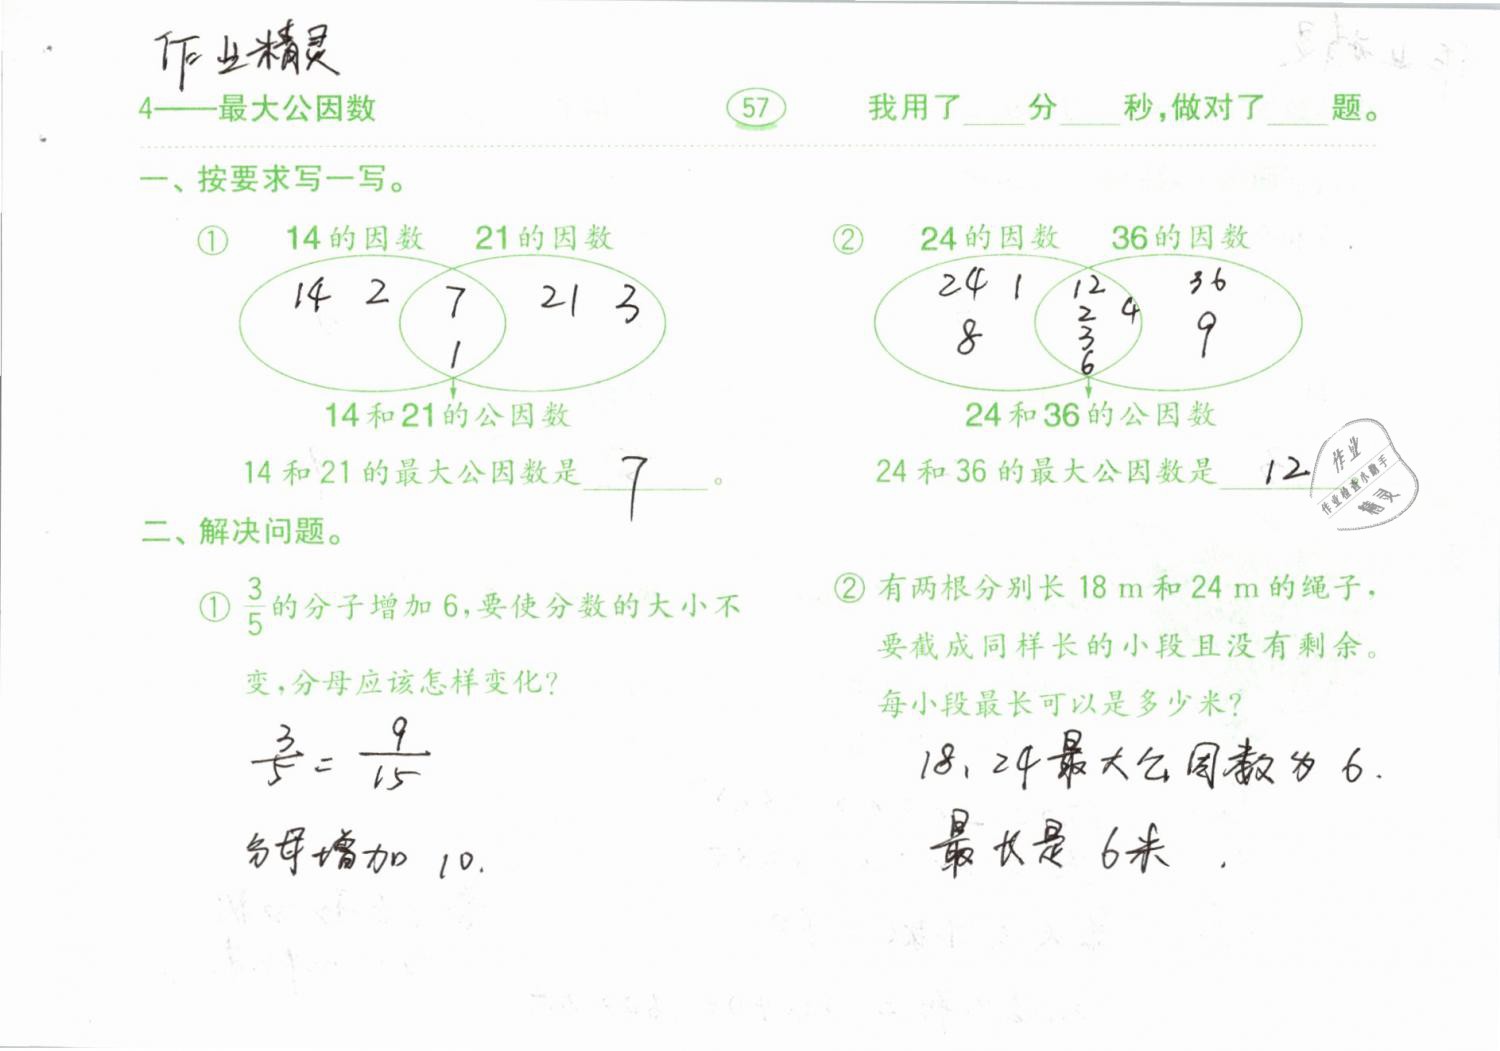 作业精灵
4——最大公因数 57 我用了____分____秒,做对了____题。
一、按要求写一写。
① 14的因数 21的因数
14 2 7 21 3
1
14和21的公因数
14和21的最大公因数是 7 。
② 24的因数 36的因数
24 1 12 36
8 2 4 9
3
6
24和36的公因数
24和36的最大公因数是 12
作业
作业检查小助手
精灵
二、解决问题。
① 3/5的分子增加6,要使分数的大小不
变,分母应该怎样变化?
3/5 = 9/15
分母增加 10.
② 有两根分别长 18 m 和 24 m 的绳子,
要截成同样长的小段且没有剩余。
每小段最长可以是多少米?
18、24最大公因数为 6.
最长是 6米.